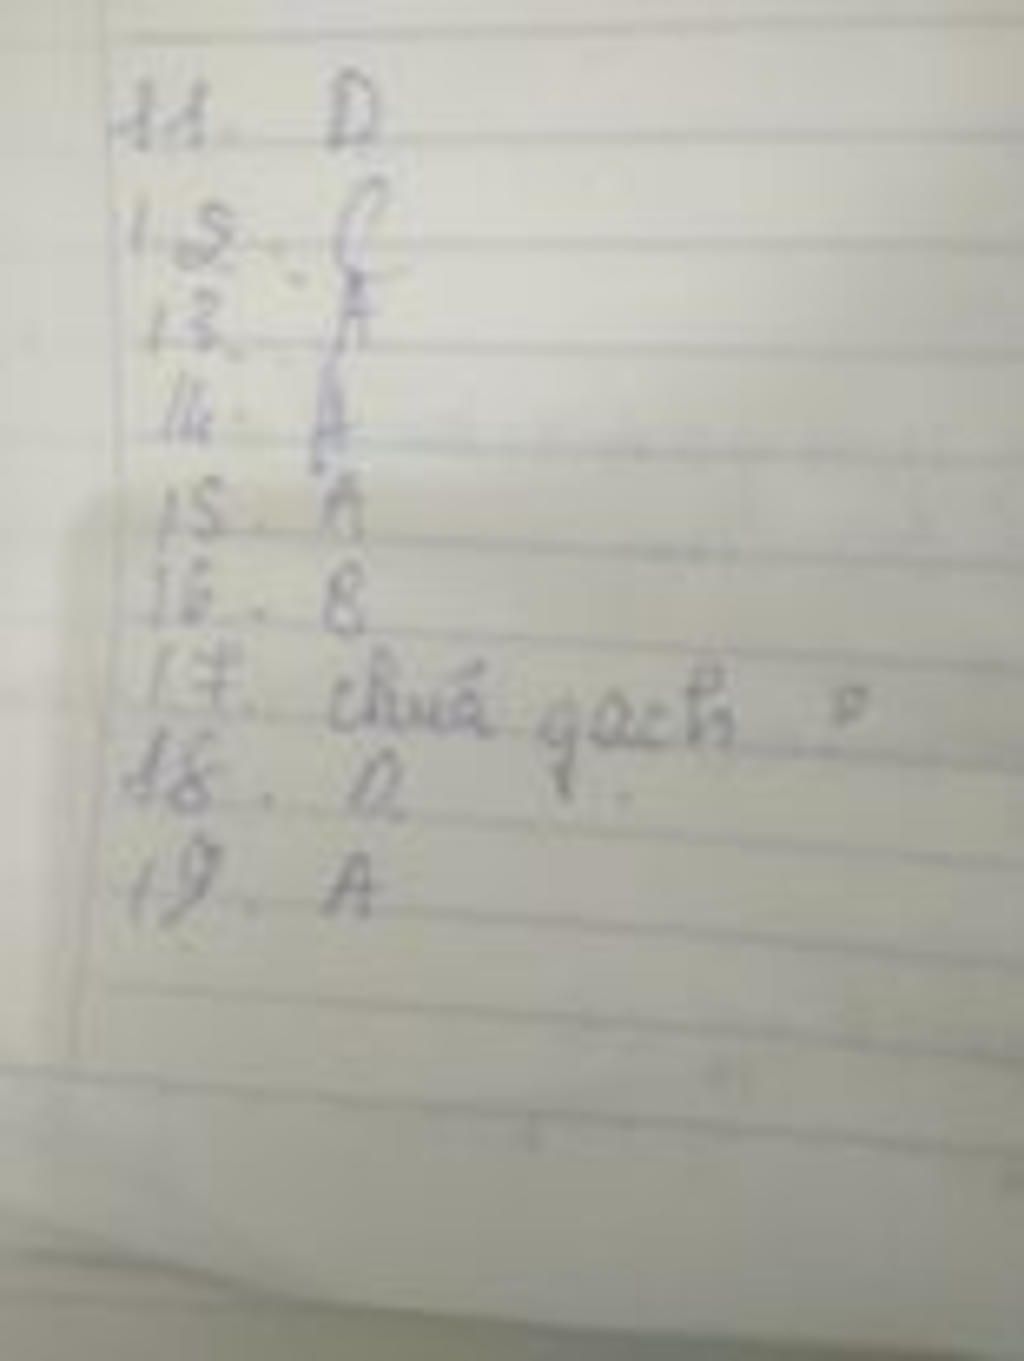 11. D
12. C
13. A
14. A
15. A
16. B
17. chuá gạch
18.
19. A